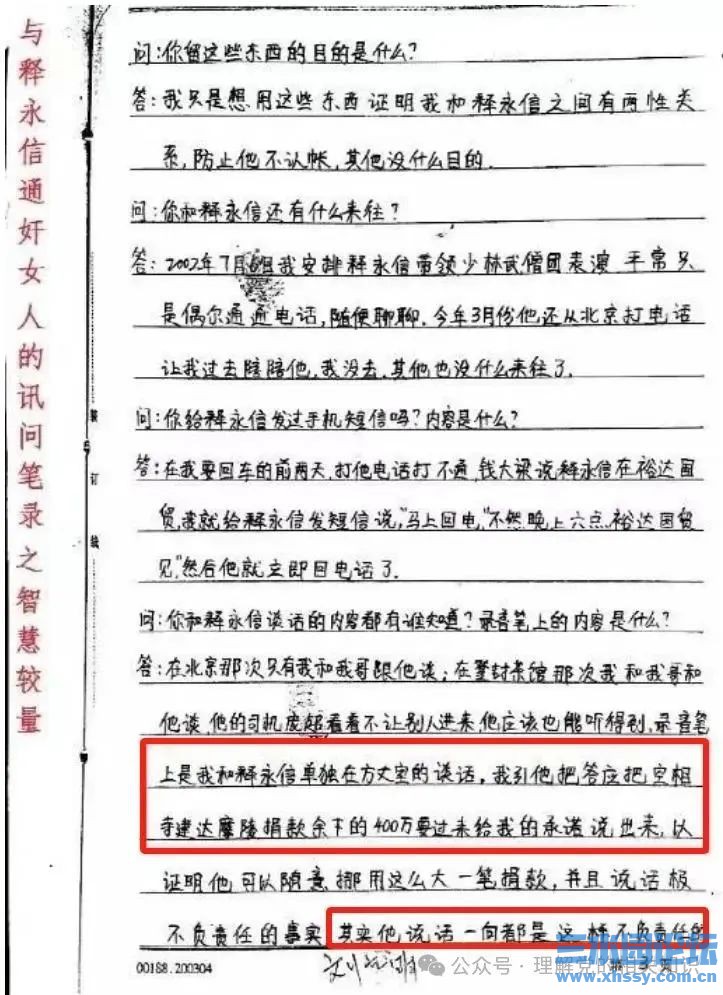 与释永信通奸女人的讯问笔录之智慧较量
问:你留这些东西的目的是什么?
答:我只是想用这些东西证明我和释永信之间有两性关
系,防止他不认帐,其他没什么目的.
问:你和释永信还有什么来往?
答:2002年7月 我安排释永信带领少林武僧团表演 平常只
是偶尔通通电话,随便聊聊.今年3月份他还从北京打电话
让我过去陪陪他,我没去.其他也没什么来往了.
问:你给释永信发过手机短信吗?内容是什么?
答:在我要回车的前两天,打他电话打不通,钱大梁说释永信在裕达国
贸,我就给释永信发短信说,"马上回电,"不然晚上六点裕达国贸
见,"然后他就立即回电话了.
问:你和释永信谈话的内容都有谁知道?录音笔上的内容是什么?
答:在北京那次只有我和我哥跟他谈;在登封宾馆那次我和我哥和
他谈,他的司机 看着不让别人进来,他应该也能听得到.录音笔
上是我和释永信单独在方丈室的谈话,我引他把答应把空相
寺建达摩陵捐款余下的400万要过来给我的承诺说出来,以
证明他可以随意挪用这么大一笔捐款,并且说话极
不负责任的事实.其实他说话一向都是这样不负责任的
装
订
线
00188.200304
第 3 页
公众号·理解党的相关知识
www.xhsslv.com